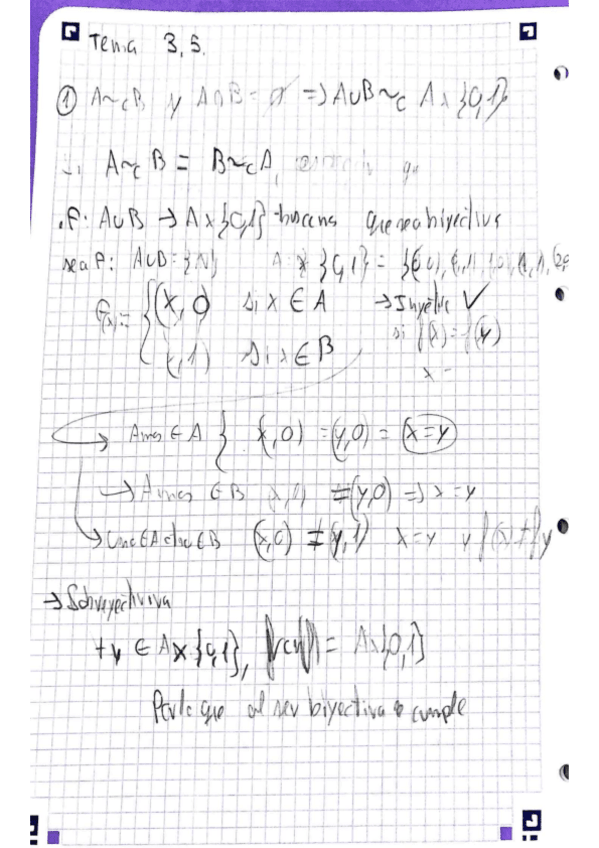 Tema 3,5.
① A~cB y A∩B=∅ => A∪B ~c A×{0,1}
A~c B = B~cA,
f: A∪B → A×{0,1} buscamos que sea biyectiva
sea f: A∪B = A × {0,1} =
f(x):= { (x,0) si x ∈ A → Inyectiva ✓
,1) si x ∈ B si f(x) = f(y)
x =
→ Ambos ∈ A } (x,0) = (y,0) = (x=y)
→ Ambos ∈ B ≠ (y,0) => x = y
→ Uno ∈ A otro ∈ B (x,0) ≠ (y,1) x = y y f(x) ≠ f y
→ Sobreyectiviva
∀y ∈ A×{0,1}, = A×{0,1}
Por lo que al ser biyectiva se cumple